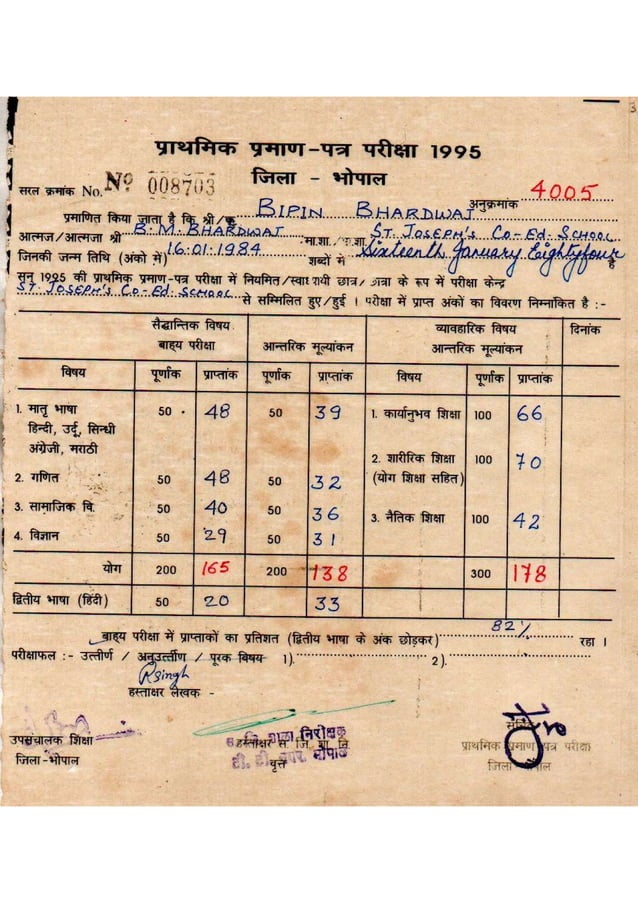 प्राथमिक प्रमाण-पत्र परीक्षा 1995
सरल क्रमांक No. Nº 008703 जिला - भोपाल
अनुक्रमांक 4005
प्रमाणित किया जाता है कि श्री/ BIPIN BHARDWAJ
आत्मज/आत्मजा श्री B.M. BHARDWAJ मा.शा./ .शा. ST. JOSEPH'S CO-ED-SCHOOL
जिनकी जन्म तिथि (अंको में) 16.01.1984 शब्दों में Sixteenth January Eightyfour है
सन् 1995 की प्राथमिक प्रमाण-पत्र परीक्षा में नियमित/स्वाध्यायी छात्र/ छात्रा के रूप में परीक्षा केन्द्र
ST. JOSEPH'S CO-ED-SCHOOL से सम्मिलित हुए/हुई । परीक्षा में प्राप्त अंकों का विवरण निम्नांकित है :-
सैद्धान्तिक विषय व्यावहारिक विषय दिनांक
बाह्य परीक्षा आन्तरिक मूल्यांकन आन्तरिक मूल्यांकन
विषय पूर्णांक प्राप्तांक पूर्णांक प्राप्तांक विषय पूर्णांक प्राप्तांक
1. मातृ भाषा 50 48 50 39 1. कार्यानुभव शिक्षा 100 66
हिन्दी, उर्दू, सिन्धी
अंग्रेजी, मराठी
2. शारीरिक शिक्षा 100 70
2. गणित 50 48 50 32 (योग शिक्षा सहित)
3. सामाजिक वि. 50 40 50 36
3. नैतिक शिक्षा 100 42
4. विज्ञान 50 29 50 31
योग 200 165 200 138 300 178
द्वितीय भाषा (हिंदी) 50 20 33
बाह्य परीक्षा में प्राप्ताकों का प्रतिशत (द्वितीय भाषा के अंक छोड़कर) 82% रहा ।
परीक्षाफल :- उत्तीर्ण / अनुउत्तीर्ण / पूरक विषय 1). 2).
RSingh
हस्ताक्षर लेखक -
उपसंचालक शिक्षा हस्ताक्षर स. जि. शा. नि. प्राथमिक प्रमाण पत्र परीक्षा
जिला-भोपाल वृत्त जिला भोपाल
शाला निरीक्षक
टी. टी. नगर, भोपाल